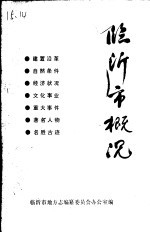 15.14
临沂市概况
●建置沿革
●自然条件
●经济状况
●文化事业
●重大事件
●著名人物
●名胜古迹
临沂市地方志编纂委员会办公室编